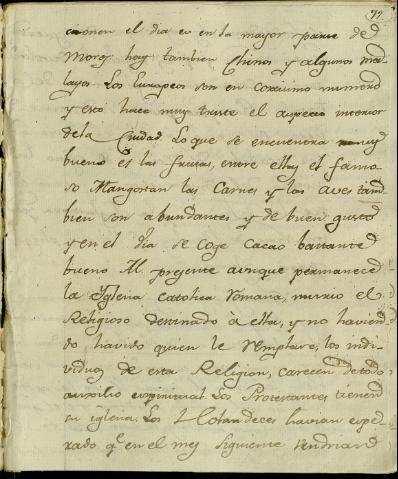 99
ponen el dia es en la mayor parte de
Moros, hay tambien Chinos y algunos ma-
layos. Los Europeos son en cortisimo numero
y esto hace muy triste el aspecto interior
de la Ciudad. Lo que se encuentra muy
bueno es las frutas, entre ellas el famo-
so Mangostan las Carnes y las aves tam-
bien son abundantes y de buen gusto
y en el dia se coge Cacao bastante
bueno Al presente aunque permanece
la Yglesia catolica romana, murio el
Religioso destinado à ella, y no havien-
do havido quien le remplase, los indi-
viduos de esta Religion, carecen de todo
auxilio espiritual. Los Protestantes tienen
su iglesia. Los Holandeses havian espe-
rado qe en el mes siguiente vendrian